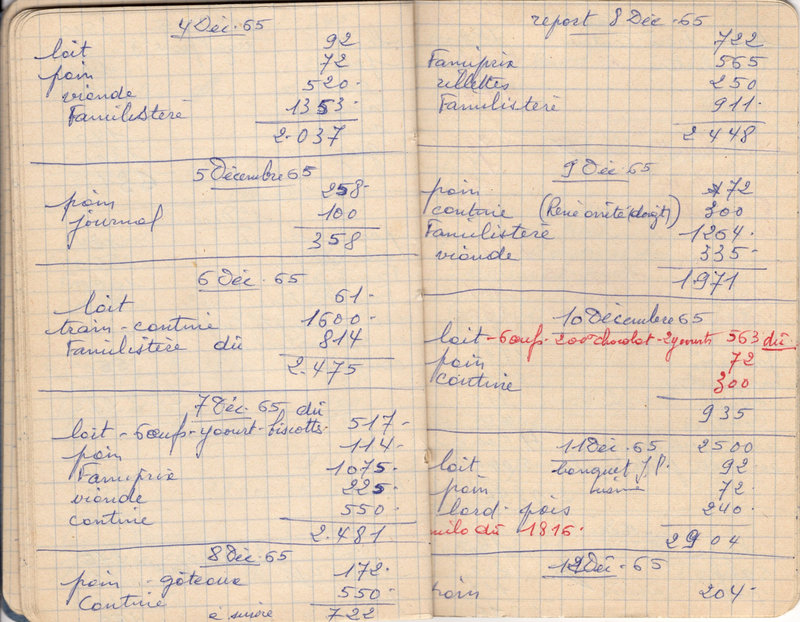 4 Déc. 65
lait 92
pain 72
viande 520.
Familistère 1353.
2.037
5 Décembre 65
pain 258.
journal 100
358
6 Déc. 65
lait 61.
train-cantine 1600.
Familistère dû 814
2.475
7 Déc. 65 dû
lait-6œufs-yaourt-biscottes 517.
pain 114.
Familprix 1075.
viande 225.
cantine 550.
2.481
8 Déc. 65
pain gâteaux 172.
Cantine 550.
à suivre 722
report 8 Déc. 65
722
Famiprix 565
rillettes 250
Familistère 911.
2448
9 Déc 65
pain 72
cantine (René arrêté doigt) 300
Familistère 1264.
viande 335.
1971
10 Décembre 65
lait-6œufs-200gr chocolat-2yaourts 563 dû.
pain 72
cantine 300
935
11 Déc. 65 2500
lait banquet J.P. 92.
pain usine 72.
lard-pois 240.
milo dû 1816.
2904
12 Déc. 65
pain 204.